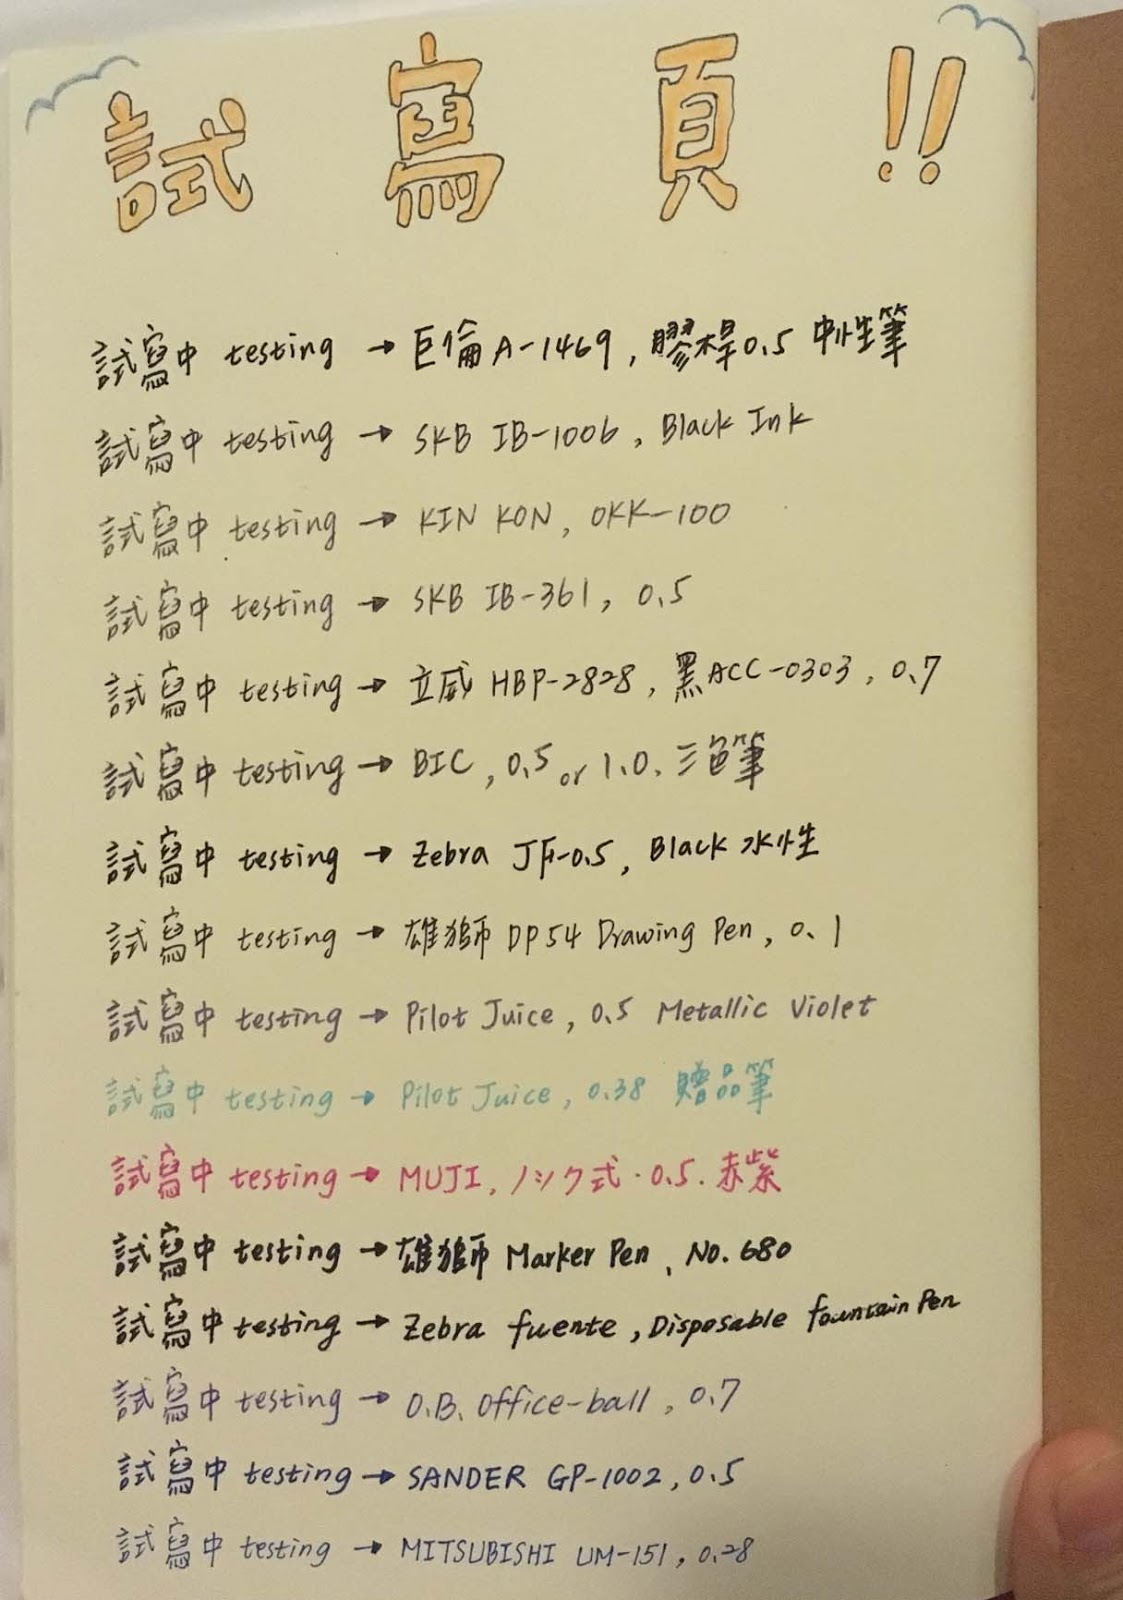 試寫頁!!
試寫中 testing → 巨倫 A-1469, 膠桿0.5 中性筆
試寫中 testing → SKB IB-1006, Black Ink
試寫中 testing → KIN KON, OKK-100
試寫中 testing → SKB IB-361, 0.5
試寫中 testing → 立威 HBP-2828, 黑ACC-0303, 0.7
試寫中 testing → BIC, 0.5 or 1.0. 三色筆
試寫中 testing → Zebra JF-0.5, Black 水性
試寫中 testing → 雄獅 DP54 Drawing Pen, 0.1
試寫中 testing → Pilot Juice, 0.5 Metallic Violet
試寫中 testing → Pilot Juice, 0.38 贈品筆
試寫中 testing → MUJI, ノック式·0.5.赤紫
試寫中 testing → 雄獅 Marker Pen, No. 680
試寫中 testing → Zebra fuente, Disposable fountain Pen
試寫中 testing → O.B. Office-ball, 0.7
試寫中 testing → SANDER GP-1002, 0.5
試寫中 testing → MITSUBISHI UM-151, 0.28